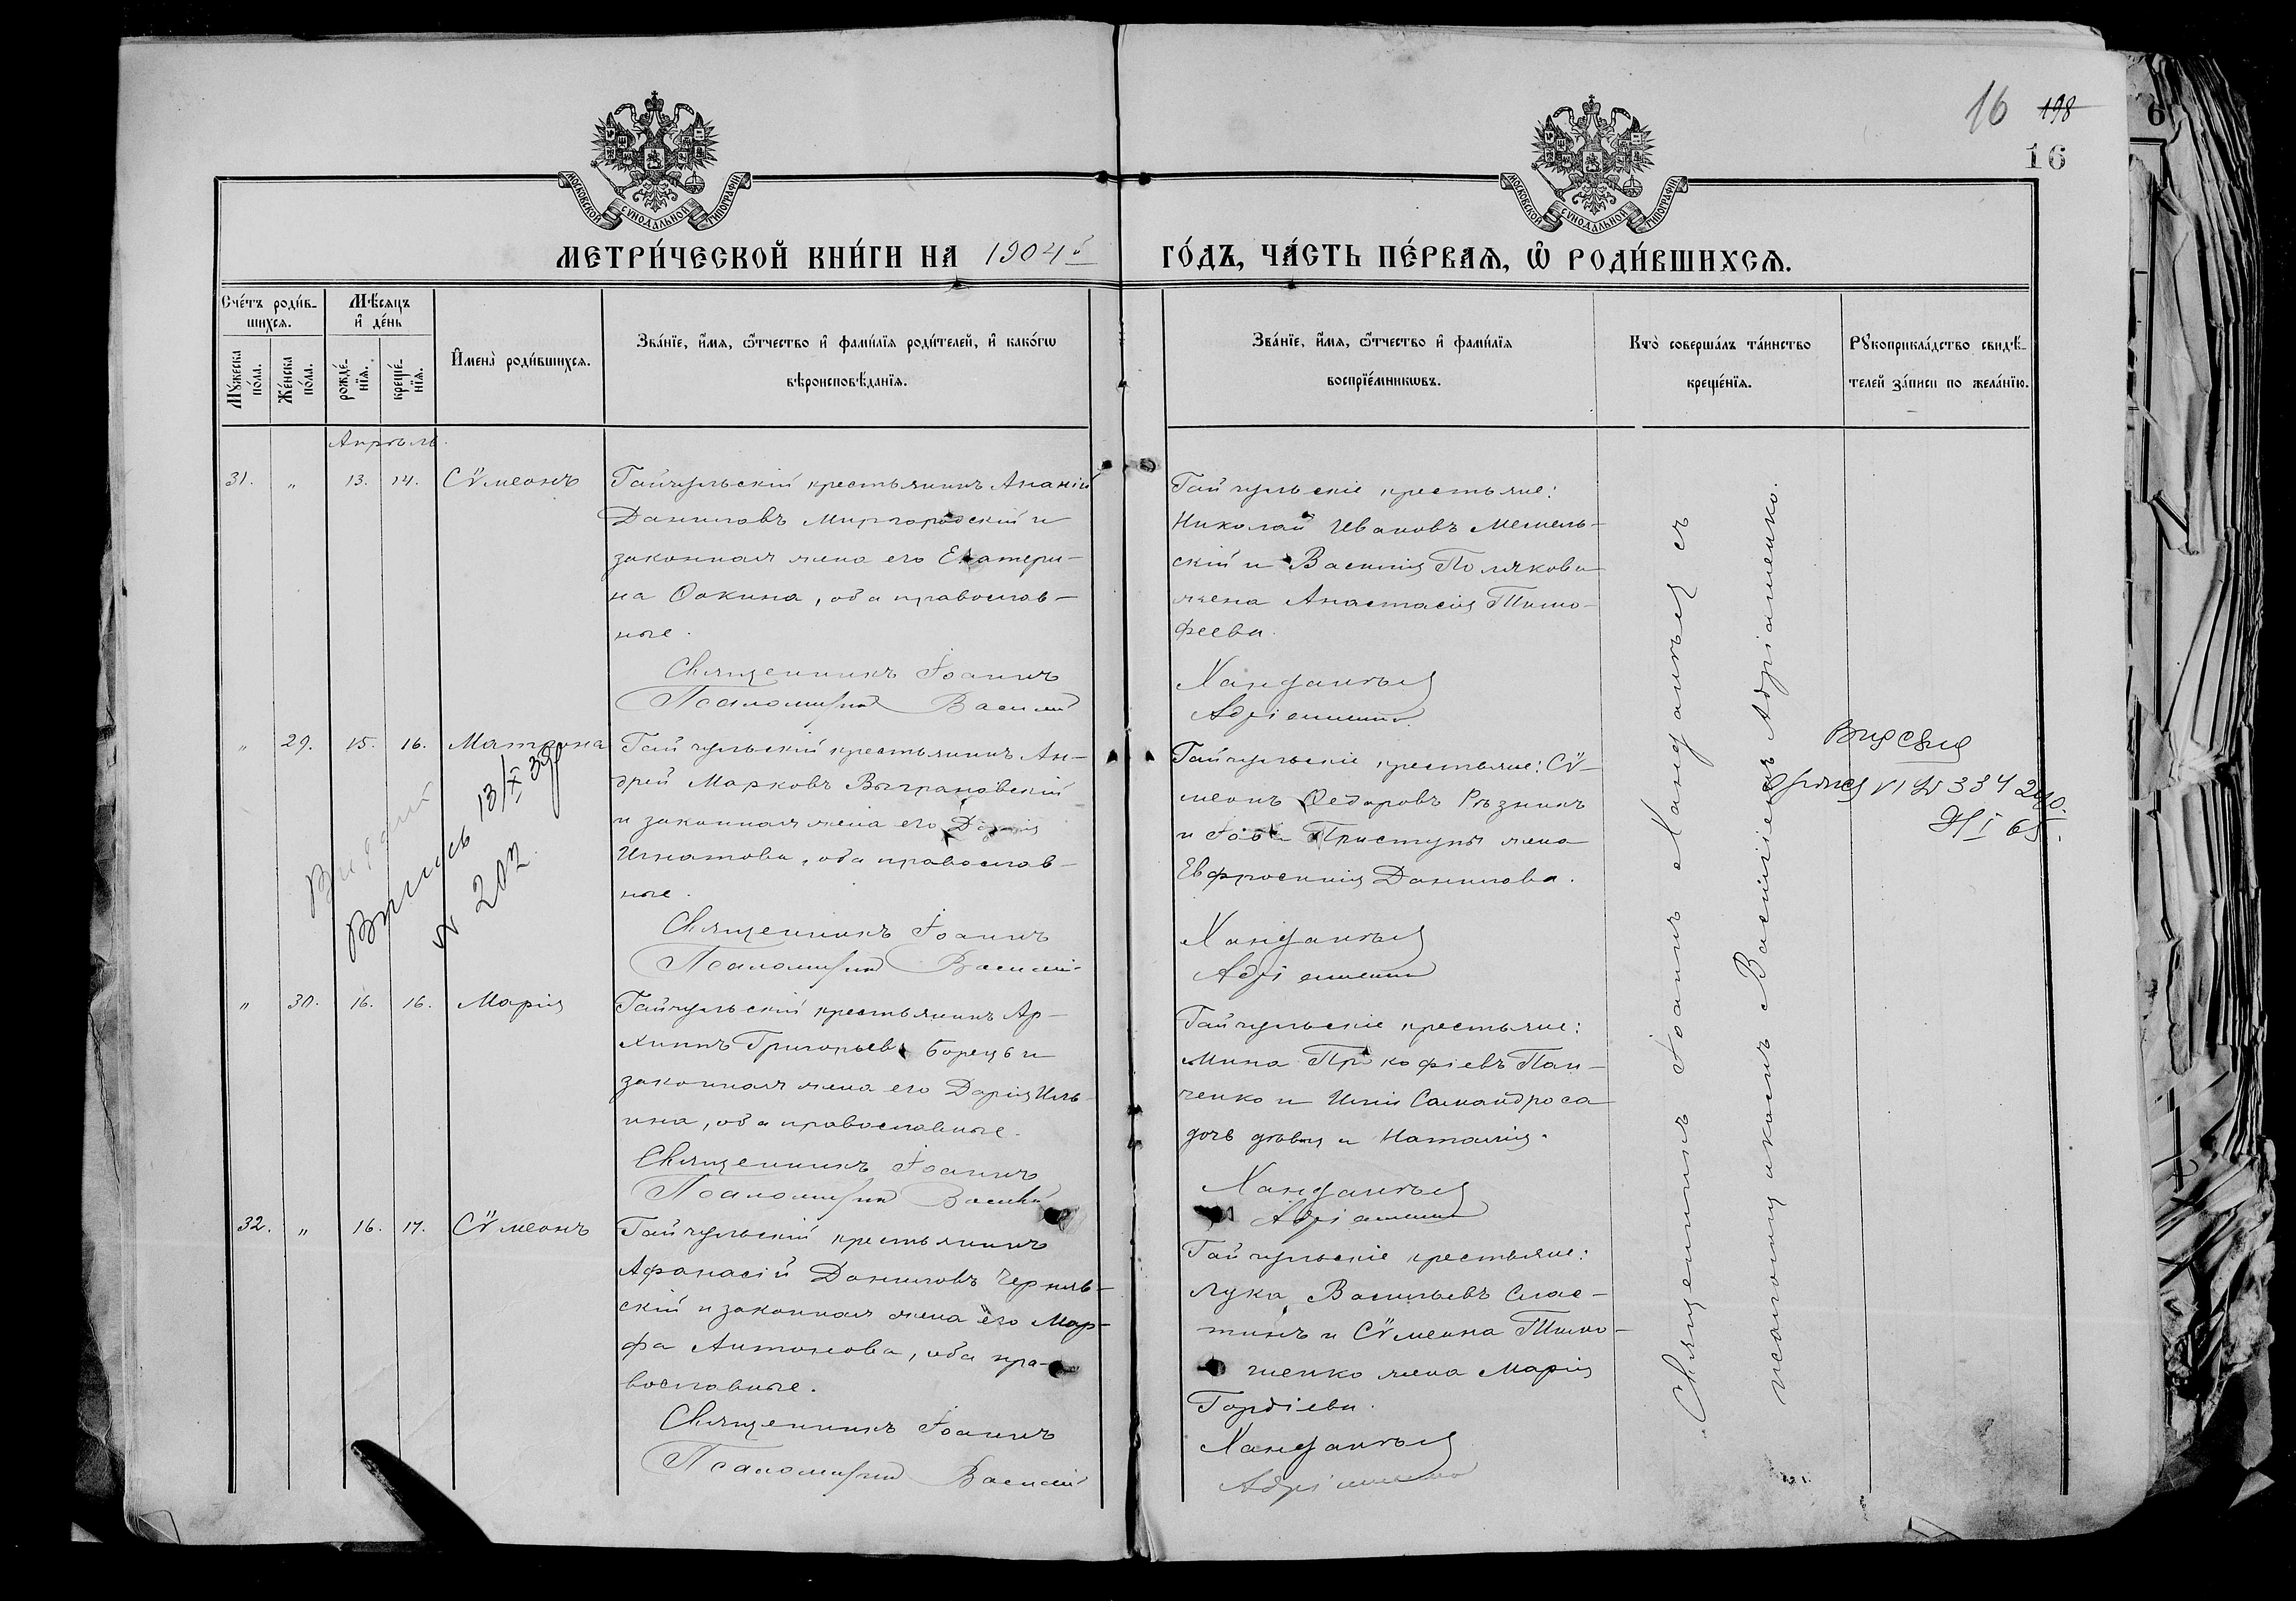 16 198
16
МОСКОВСКОЙ СУНОДАЛЬНОЙ ТИПОГРАФІИ
МОСКОВСКОЙ СУНОДАЛЬНОЙ ТИПОГРАФІИ
МЕТРИ́ЧЕСКОЙ КНИ́ГИ НА 1904й ГО́ДЪ, ЧА́СТЬ ПЕ́РВАѦ, Ѡ҆ РОДИ́ВШИХСѦ.
Сче́тъ роди́в-
шихсѧ.
Мꙋ́жеска
по́ла.
Же́нска
по́ла.
Мѣ́сѧцъ
и҆ де́нь
рожде́-
нїѧ.
креще́-
нїѧ.
И҆мена̀ роди́вшихсѧ.
Зва́нїе, и҆́мѧ, ѻ҆́тчество и҆ фами́лїѧ роди́телей, и҆ како́гѡ
вѣроисповѣ́данїѧ.
Зва́нїе, и҆́мѧ, ѻ҆́тчество и҆ фами́лїѧ
воспрїе́мникѡвъ.
Кто̀ соверша́лъ та́инство
креще́нїѧ.
Рꙋкоприкла́дство свидѣ́-
телей за́писи по жела́нїю.
Апрѣль.
31. " 13. 14. Сѷмеонъ
Гайчульскій крестьянинъ Ананій
Даниловъ Миргородскій и
законная жена его Екатери-
на Фокина, оба православ-
ные.
Священникъ Іоаннъ
Псаломщикъ Василій
Гайчульскіе крестьяне:
Николай Ивановъ
скій и Василія Полякова
жена Анастасія Тимо-
феева.
Ханданѣев
Адріаненко
" 29. 15. 16. Матрона
Гайчульскій крестьянинъ Ан-
дрей Марковъ Выграновскій
и законная жена его Дарія
Игнатова, оба православ-
ные.
Священникъ Іоаннъ
Псаломщикъ Василій
Гайчульскіе крестьяне: Сѷ-
меонъ Федоровъ Рѣзникъ
и Іова Приступы жена
Евфросинія Данилова.
Ханданѣев
Адріаненко
Виданий
Выпись 13/X 39
№ 202
" 30. 16. 16. Марія
Гайчульскій крестьянинъ Ар-
хиппъ Григорьевъ Борецъ и
законная жена его Дарія Иль-
ина, оба православные.
Священникъ Іоаннъ
Псаломщикъ Василій
Гайчульскіе крестьяне:
Мина Прокофіевъ Пан-
ченко и Иліи
дочь дѣвица Наталія.
Ханданѣев
Адріаненко
32. " 16. 17. Сѷмеонъ
Гайчульскій крестьянинъ
Афанасій Даниловъ Черняв-
скій и законная жена его Мар-
фа Антонова, оба пра-
вославные.
Священникъ Іоаннъ
Псаломщикъ Василій
Гайчульскіе крестьяне:
Лука Васильевъ Слас-
тинъ и Сѷмеона Тимо-
шенко жена Марія
Гордіева.
Ханданѣев
Адріаненко
Священникъ Іоаннъ Ханданѣев съ
псаломщикомъ Василіемъ Адріаненко.